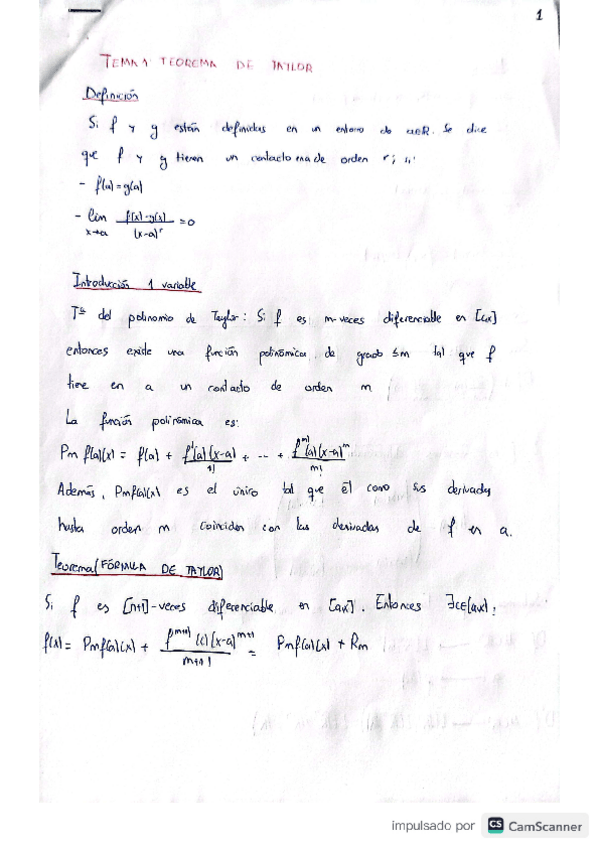 1
TEMA 1 TEOREMA DE TAYLOR
Definición
Si f y g están definidas en un entorno de a∈R. Se dice
que f y g tienen un contacto en a de orden r si:
- f(a)=g(a)
- lim x→a (f(x)-g(x))/(x-a)^r = 0
Introducción 1 variable
T^ma del polinomio de Taylor: Si f es m-veces diferenciable en [a,x]
entonces existe una función polinómica de grado ≤m tal que f
tiene en a un contacto de orden m
La función polinómica es:
Pm f(a)(x) = f(a) + f'(a)(x-a)/1! + ... + f^m)(a)(x-a)^m/m!
Además, Pmf(a)(x) es el único tal que él como sus derivadas
hasta orden m coinciden con las derivadas de f en a.
Teorema (FÓRMULA DE TAYLOR)
Si f es [m+1]-veces diferenciable en [a,x]. Entonces ∃c∈[a,x]:
f(x) = Pmf(a)(x) + f^m+1)(c)(x-a)^m+1/m+1! = Pmf(a)(x) + Rm
impulsado por CS CamScanner